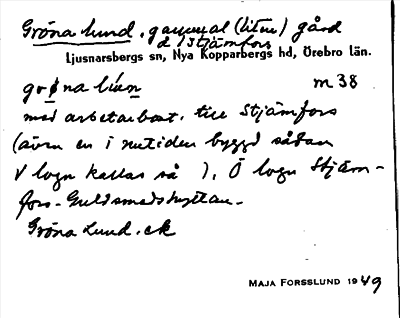 Gröna Lund, gammal (liten) gård
d / Stjämfors
Ljusnarsbergs sn, Nya Kopparbergs hd, Örebro län.
grøna lún m 38
med arbetarbost. till Stjämfors
(även en i nutiden byggd sådan
V logn kallas så ). Ö logn Stjäm-
fors - Guldsmedshyttan -
Gröna Lund. ek
MAJA FORSSLUND 1949